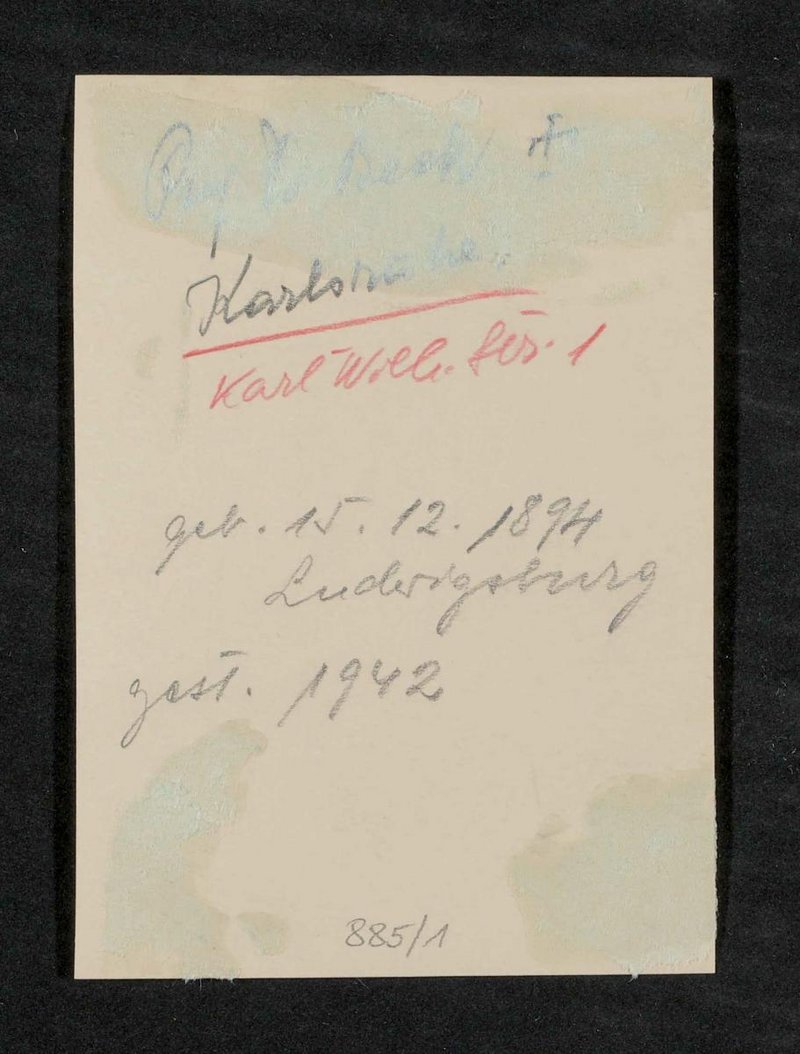 Karlsruhe.
Karl-Wilh. Str. 1
geb. 15. 12. 1894
Ludwigsburg
gest. 1942
885/1